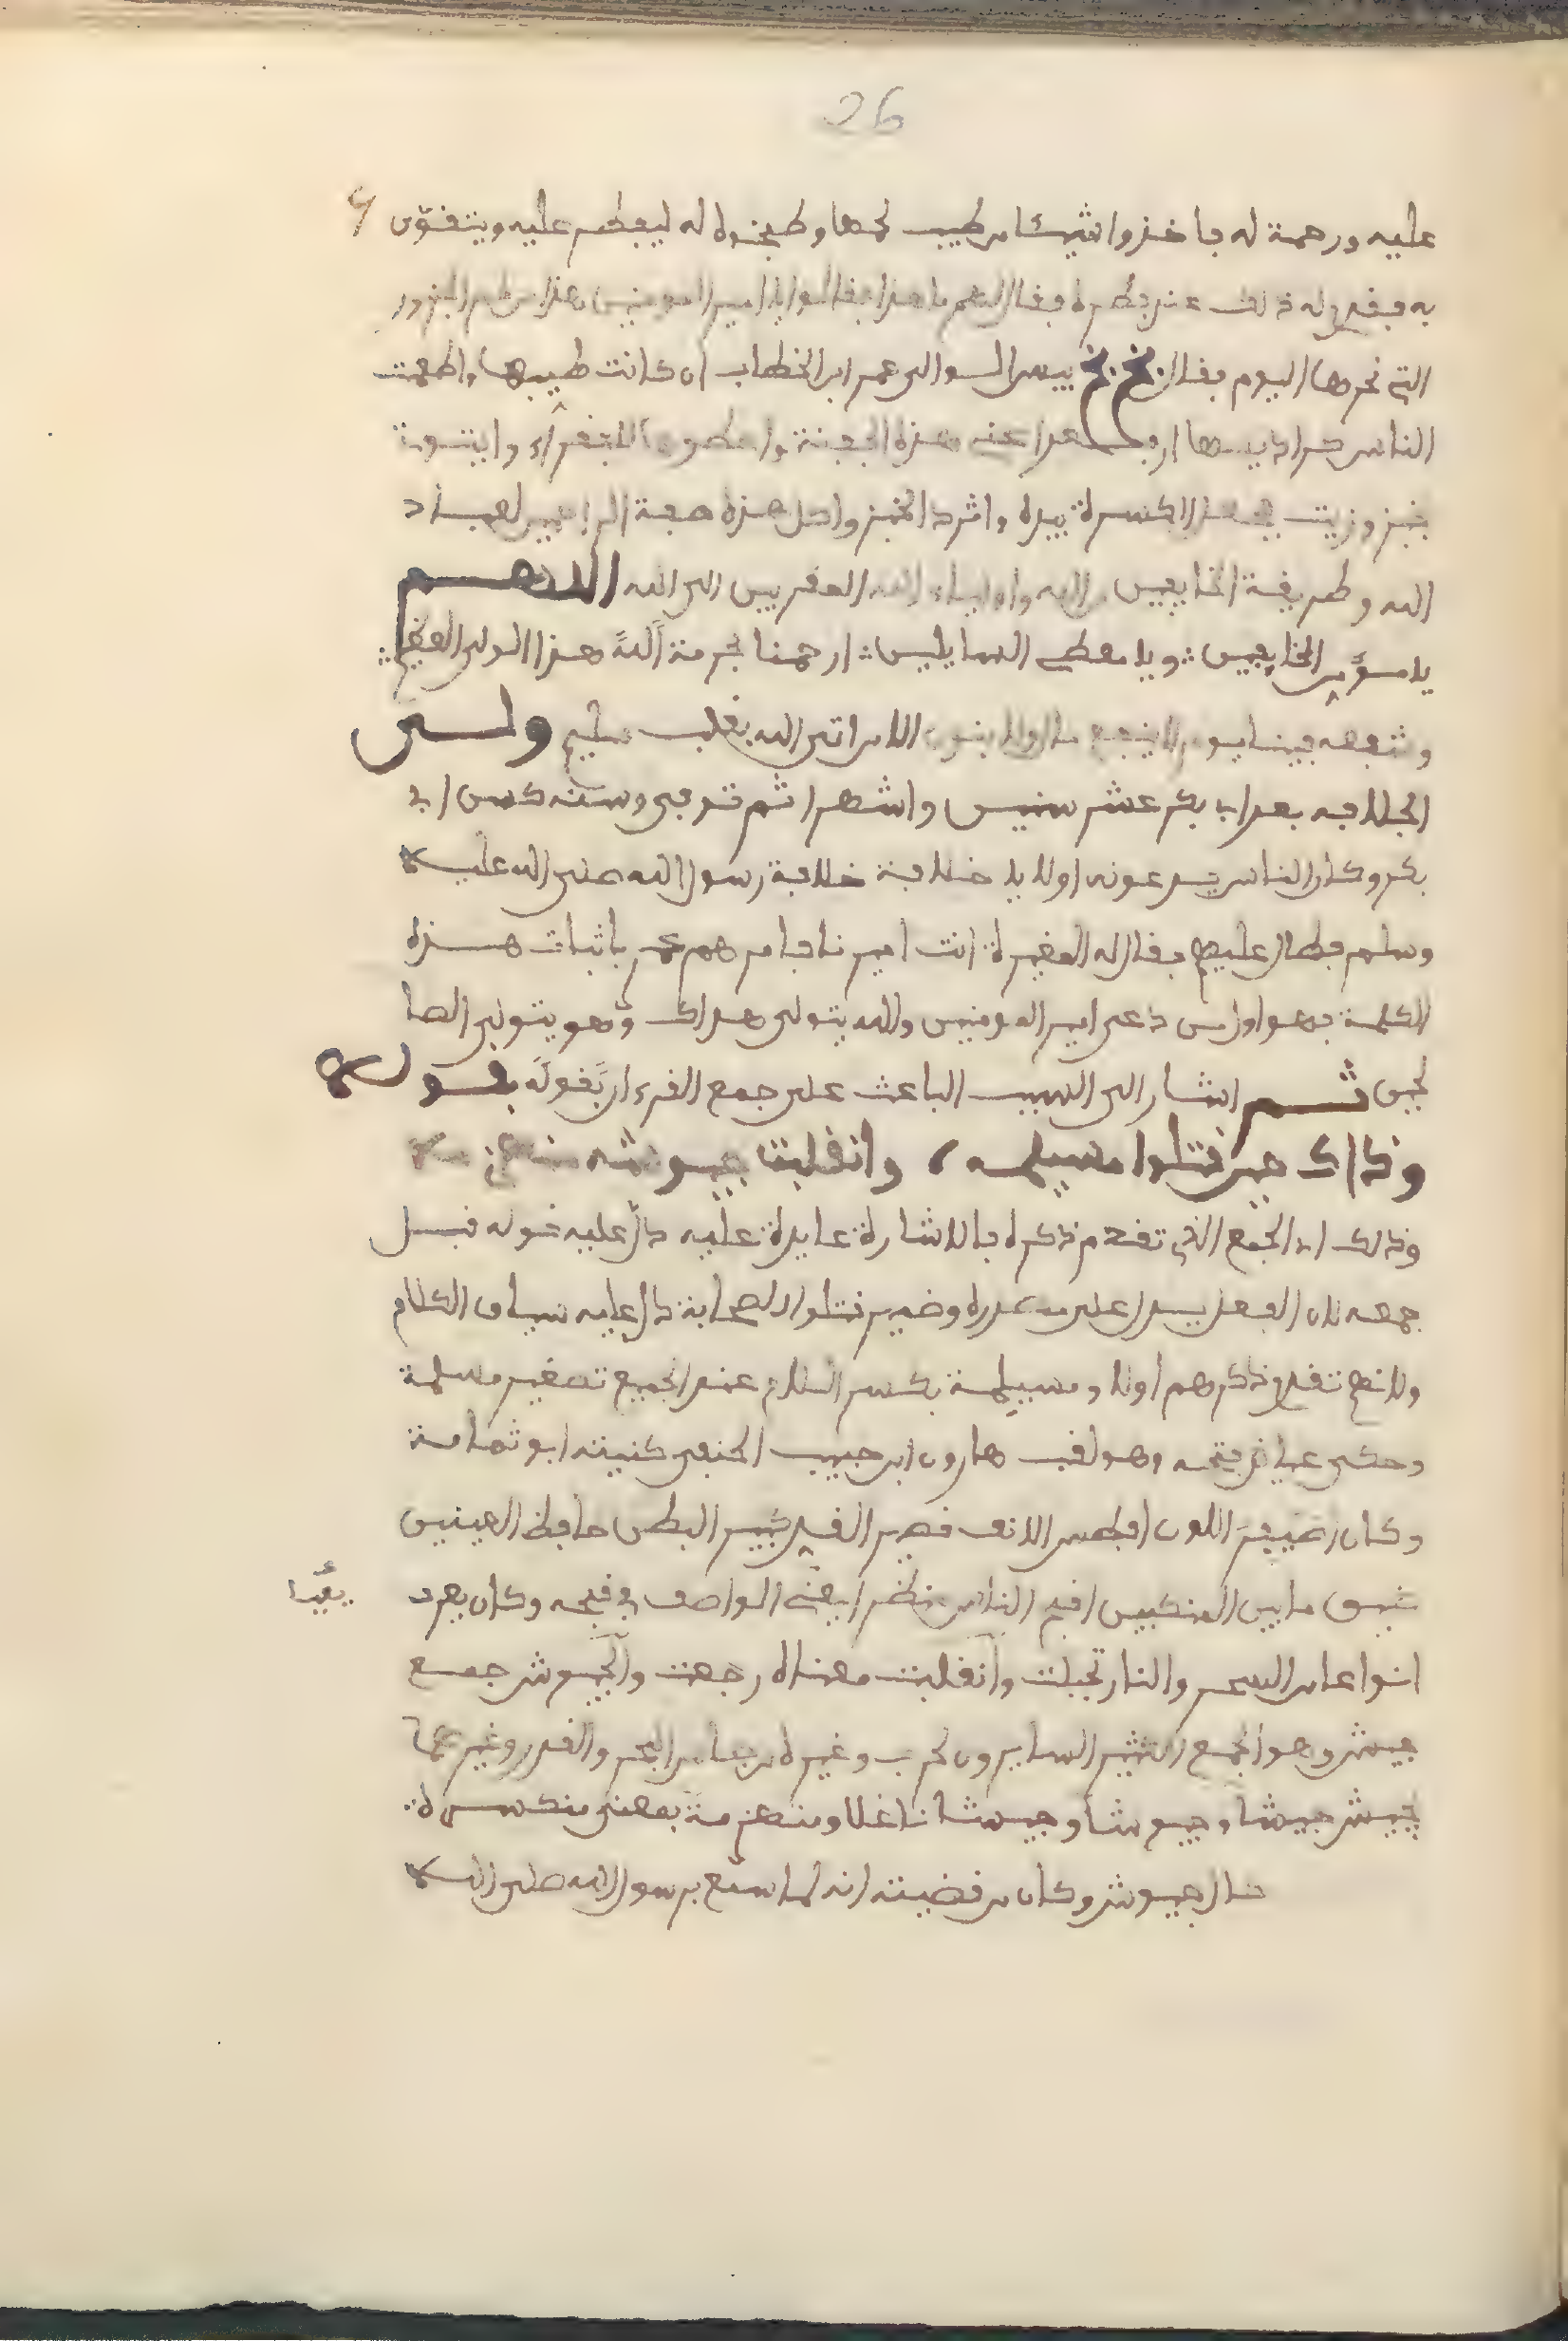 26
عليه ورحمة له فاخذوا شيئا من طيب لحمها وطبخوه له ليفطر عليه ويتقوى
به فقدم له ذلك عند فطره فقال لهم ما هذا فقالوا يا امير المومنين هذا من لحم الجزور
التي نحرها اليوم فقال بخ بخ بيس الوالي عمر ابن الخطاب ان كانت طيبها واطعمت
الناس كراديسها ارفعوا عنه هذه الجفنة واعطوها للفقراء وايتونه
بخبز وزيت فجعل يكسره بيده واثرد الخبز واكل هذه صفة الراجيين لعباد
الله وطريقة الخايفين من الله واولياء الله المقربين الى الله اللهم
يا مؤمن الخايفين ويا معطي السايلين ارحمنا بحرمة الله هذا الولي
وشفعه فينا يوم لا ينفع مال ولا بنون الا من اتى الله بقلب سليم ولي
الخلافه بعد ابي بكر عشر سنين واشهرا ثم توفي وسنه كسن ابي
بكر وكان الناس يدعونه اولا يا خلافة خلافة رسول الله صلى الله عليه
وسلم فطال عليهم فقال له المغيرة انت اميرنا فامرهم عمر باثبات هذه
الكلمة فهو اول من دعي امير المومنين والله يتولى هداك وهو يتولى الصا
لحين ثم اشار الى السبب الباعث على جمع القرءان بقوله بقوله
وذاك حين قتلوا مسيلمه وانقلبت جيوشه منهزمه
وذلك اي الجمع الذي تقدم ذكره فالاشارة عايدة عليه دال عليه قوله قبل
جمعه لان الفعل يدل على مصدره وضمير قتلوا للصحابة دل عليه سياق الكلام
ولانهم تقدم ذكرهم اولا ومسيلمة بكسر اللام عند الجميع تصغير مسلمة
وحكي عياض فتحه وهو لقب هارون ابن حبيب الحنفي كنيته ابو ثمامة
وكان ضعيف اللون افطس الانف قصير القد كبير البطن حافظ العينين
ضيق ما بين المنكبين اقبح الناس منظرا يعي الواصف في قبحه وكان يعرف
انواعا من السحر والنار تجيلت وانقلبت معناه رجعت والجيوش جمع
جيش وهو الجمع الكثير السايرون لحرب وغيره من جاس البحر والقدر وغيرهما
يجيش جيشا وجيوشا وجيشانا غلا ومنهزمة بمعنى منكسرة
حال جيوش وكان من قضيته انه لما سمع برسول الله صلى الله